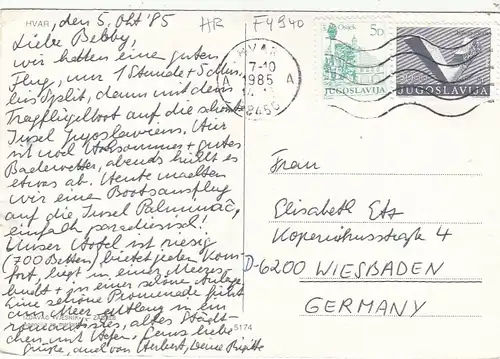 HVAR, den 5. Okt '85
HR
F4940
Liebe Bebby,
wir hatten einen guten
Flug, nur 1 Stunde + 5 Min.
bis Split, dann mit dem
Tragflügelboot auf die schönste
Insel Jugoslawiens. Hier
ist noch Hochsommer + gutes
Badewetter, abends kühlt es
etwas ab. Heute machten
wir eine Bootsausflug
auf die Insel Palmizac,
einfach paradiesisch!
Unser Hotel ist riesig
(700 Betten) bietet jeden Kom-
fort, liegt in einer Meeres
bucht + in einer schöne Anlage.
Eine schöne Promenade führt
am Meer entlang in ein
romantisches, altes Städt-
chen mit Hafen. Ganz liebe
Grüße, auch von Herbert, Deine Brigitte
5174
HVAR
7-10
1985
A
A
Osijek
5D
JUGOSLAVIJA
JUGOSLAVIJA
Frau
Elisabeth Etz
Kopernikusstraße 4
D-6200 WIESBADEN
GERMANY